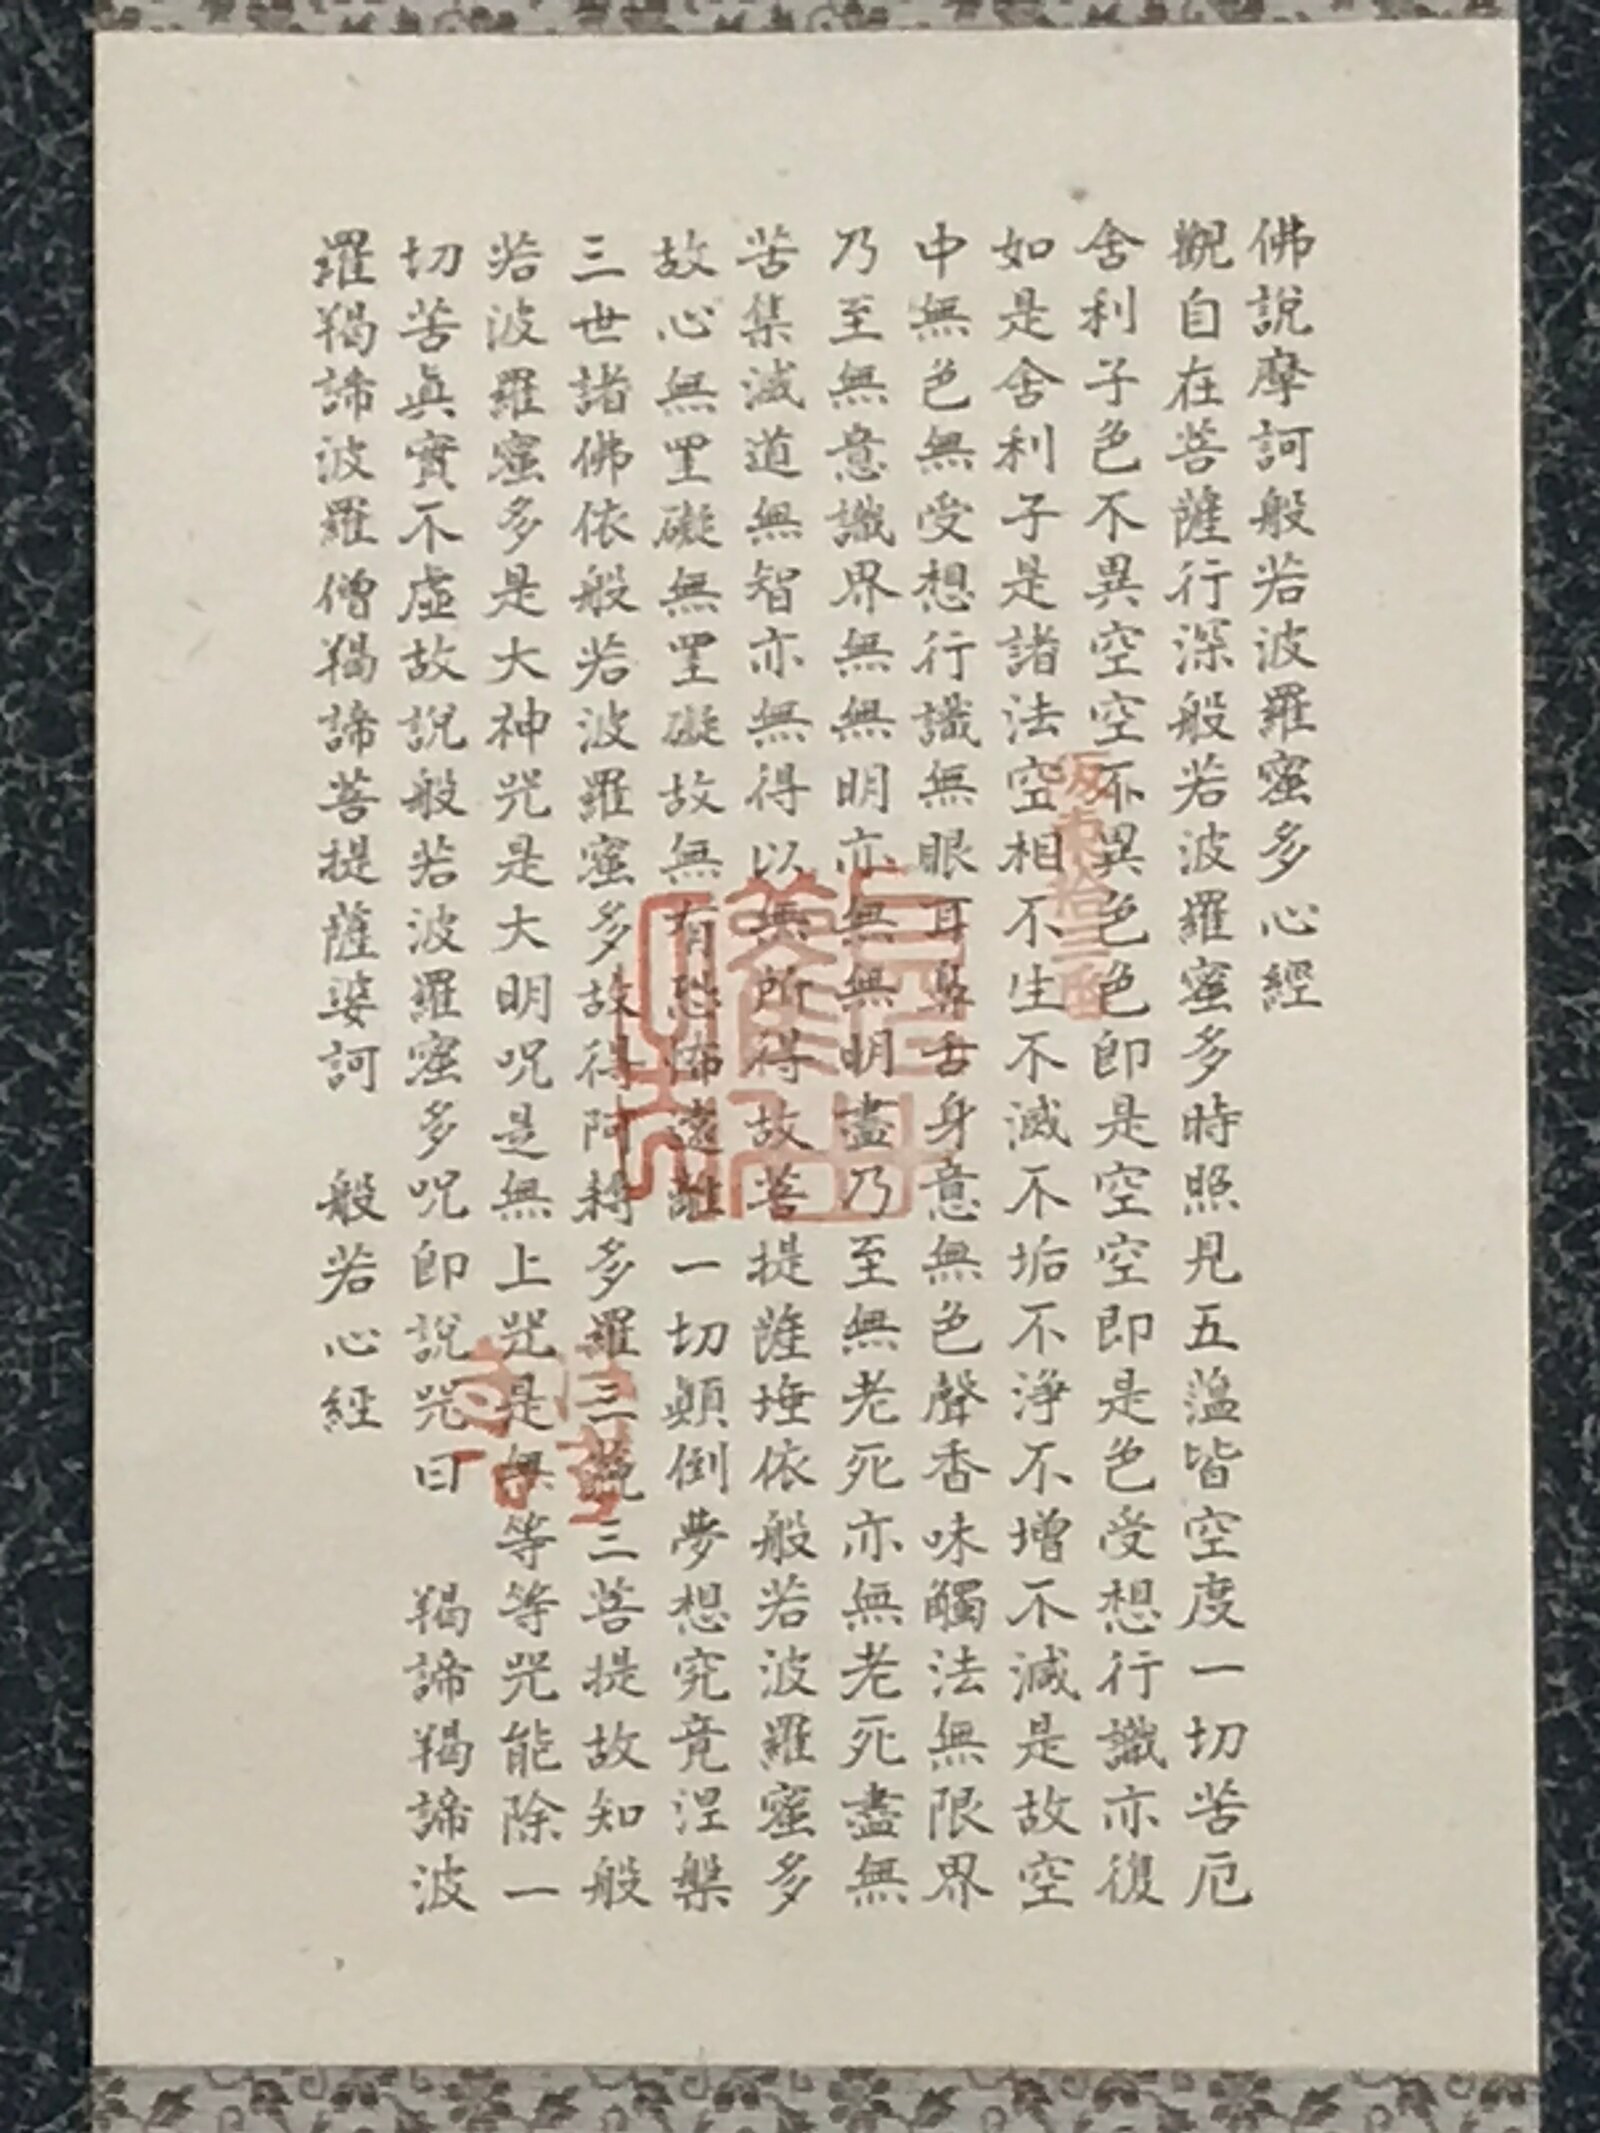 佛說摩訶般若波羅蜜多心經
觀自在菩薩行深般若波羅蜜多時照見五蘊皆空度一切苦厄
舍利子色不異空空不異色色即是空空即是色受想行識亦復
如是舍利子是諸法空相不生不滅不垢不淨不增不減是故空
中無色無受想行識無眼耳鼻舌身意無色聲香味觸法無限界
乃至無意識界無無明亦無無明盡乃至無老死亦無老死盡無
苦集滅道無智亦無得以無所得故菩提薩埵依般若波羅蜜多
故心無罣礙無罣礙故無有恐怖遠離一切顛倒夢想究竟涅槃
三世諸佛依般若波羅蜜多故得阿耨多羅三藐三菩提故知般
若波羅蜜多是大神咒是大明呪是無上咒是無等等咒能除一
切苦真實不虛故說般若波羅蜜多呪即說咒曰 羯諦羯諦波
羅羯諦波羅僧羯諦菩提薩婆訶 般若心經
坂東拾三番